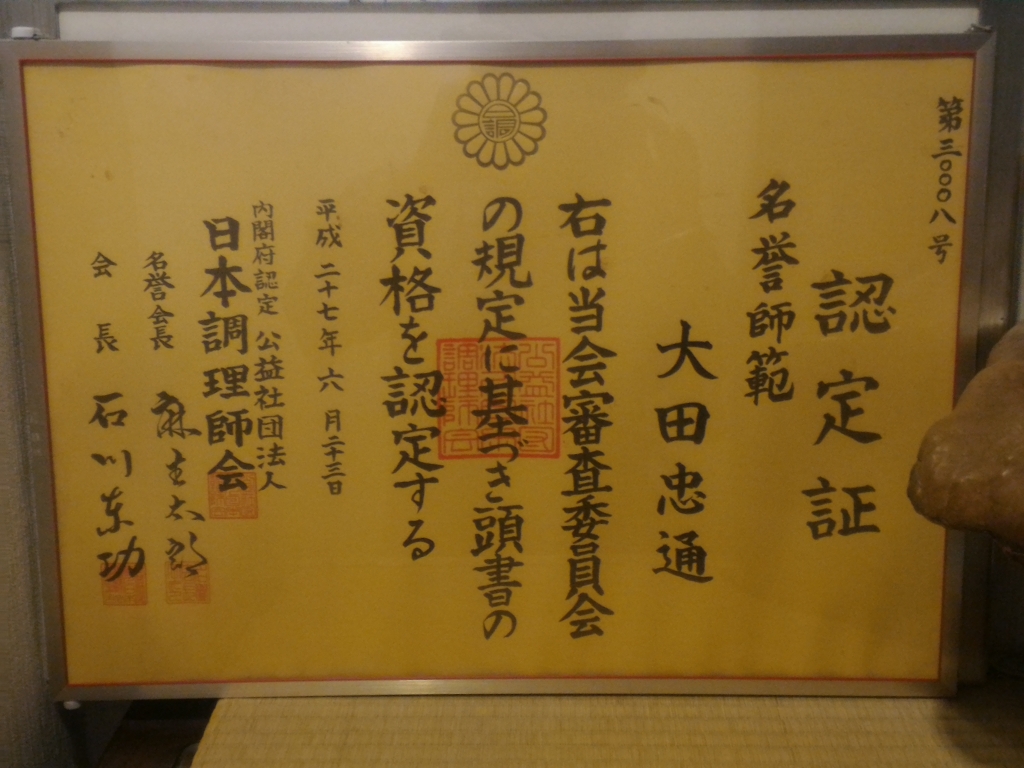 第三〇〇八号
認定証
名誉師範
大田忠通
右は当会審査委員会
の規定に基づき頭書の
資格を認定する
平成二十七年六月二十三日
内閣府認定 公益社団法人
日本調理師会
名誉会長 麻生太郎
会長 石川東功